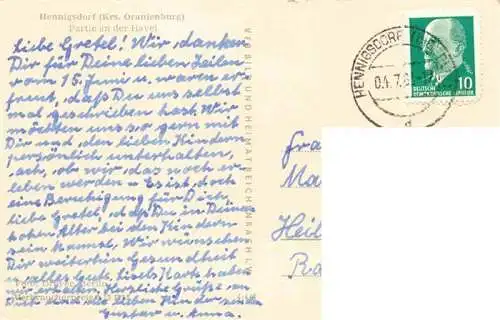 Hennigsdorf (Krs. Oranienburg)
Partie an der Havel
Liebe Gretel! Wir danken
Dir für Deine lieben Zeilen
vom 15. Juni u. waren er-
freut, daß Du uns selbst
mal geschrieben hast. Wir
möchten uns so gern mit
Dir und den lieben Kindern
persönlich unterhalten,
ach, ob wir das noch er-
leben werden – Es ist doch
eine Beruhigung für Dich,
liebe Gretel, daß Du in Deinem
hohen Alter bei den Kindern
sein kannst. Wir wünschen
Dir weiterhin Gesundheit
u. alles Gute. Karte haben
wir erhalten. Herzliche Grüße an
Dich und die lieben Kinder
Gustav u. Anna.
VEB BILD UND HEIMAT REICHENBACH I. V.
Verbraucherpreis
HENNIGSDORF
10
DEUTSCHE
DEMOKRATISCHE REPUBLIK
Fra
Ma
Heil
Ra